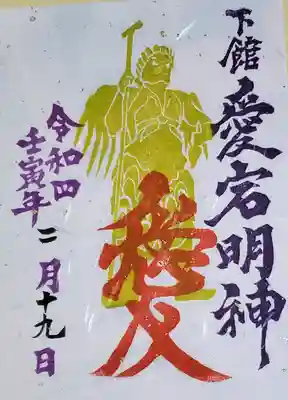 下館
愛宕明神
愛
令和四
壬寅年
二月十九日